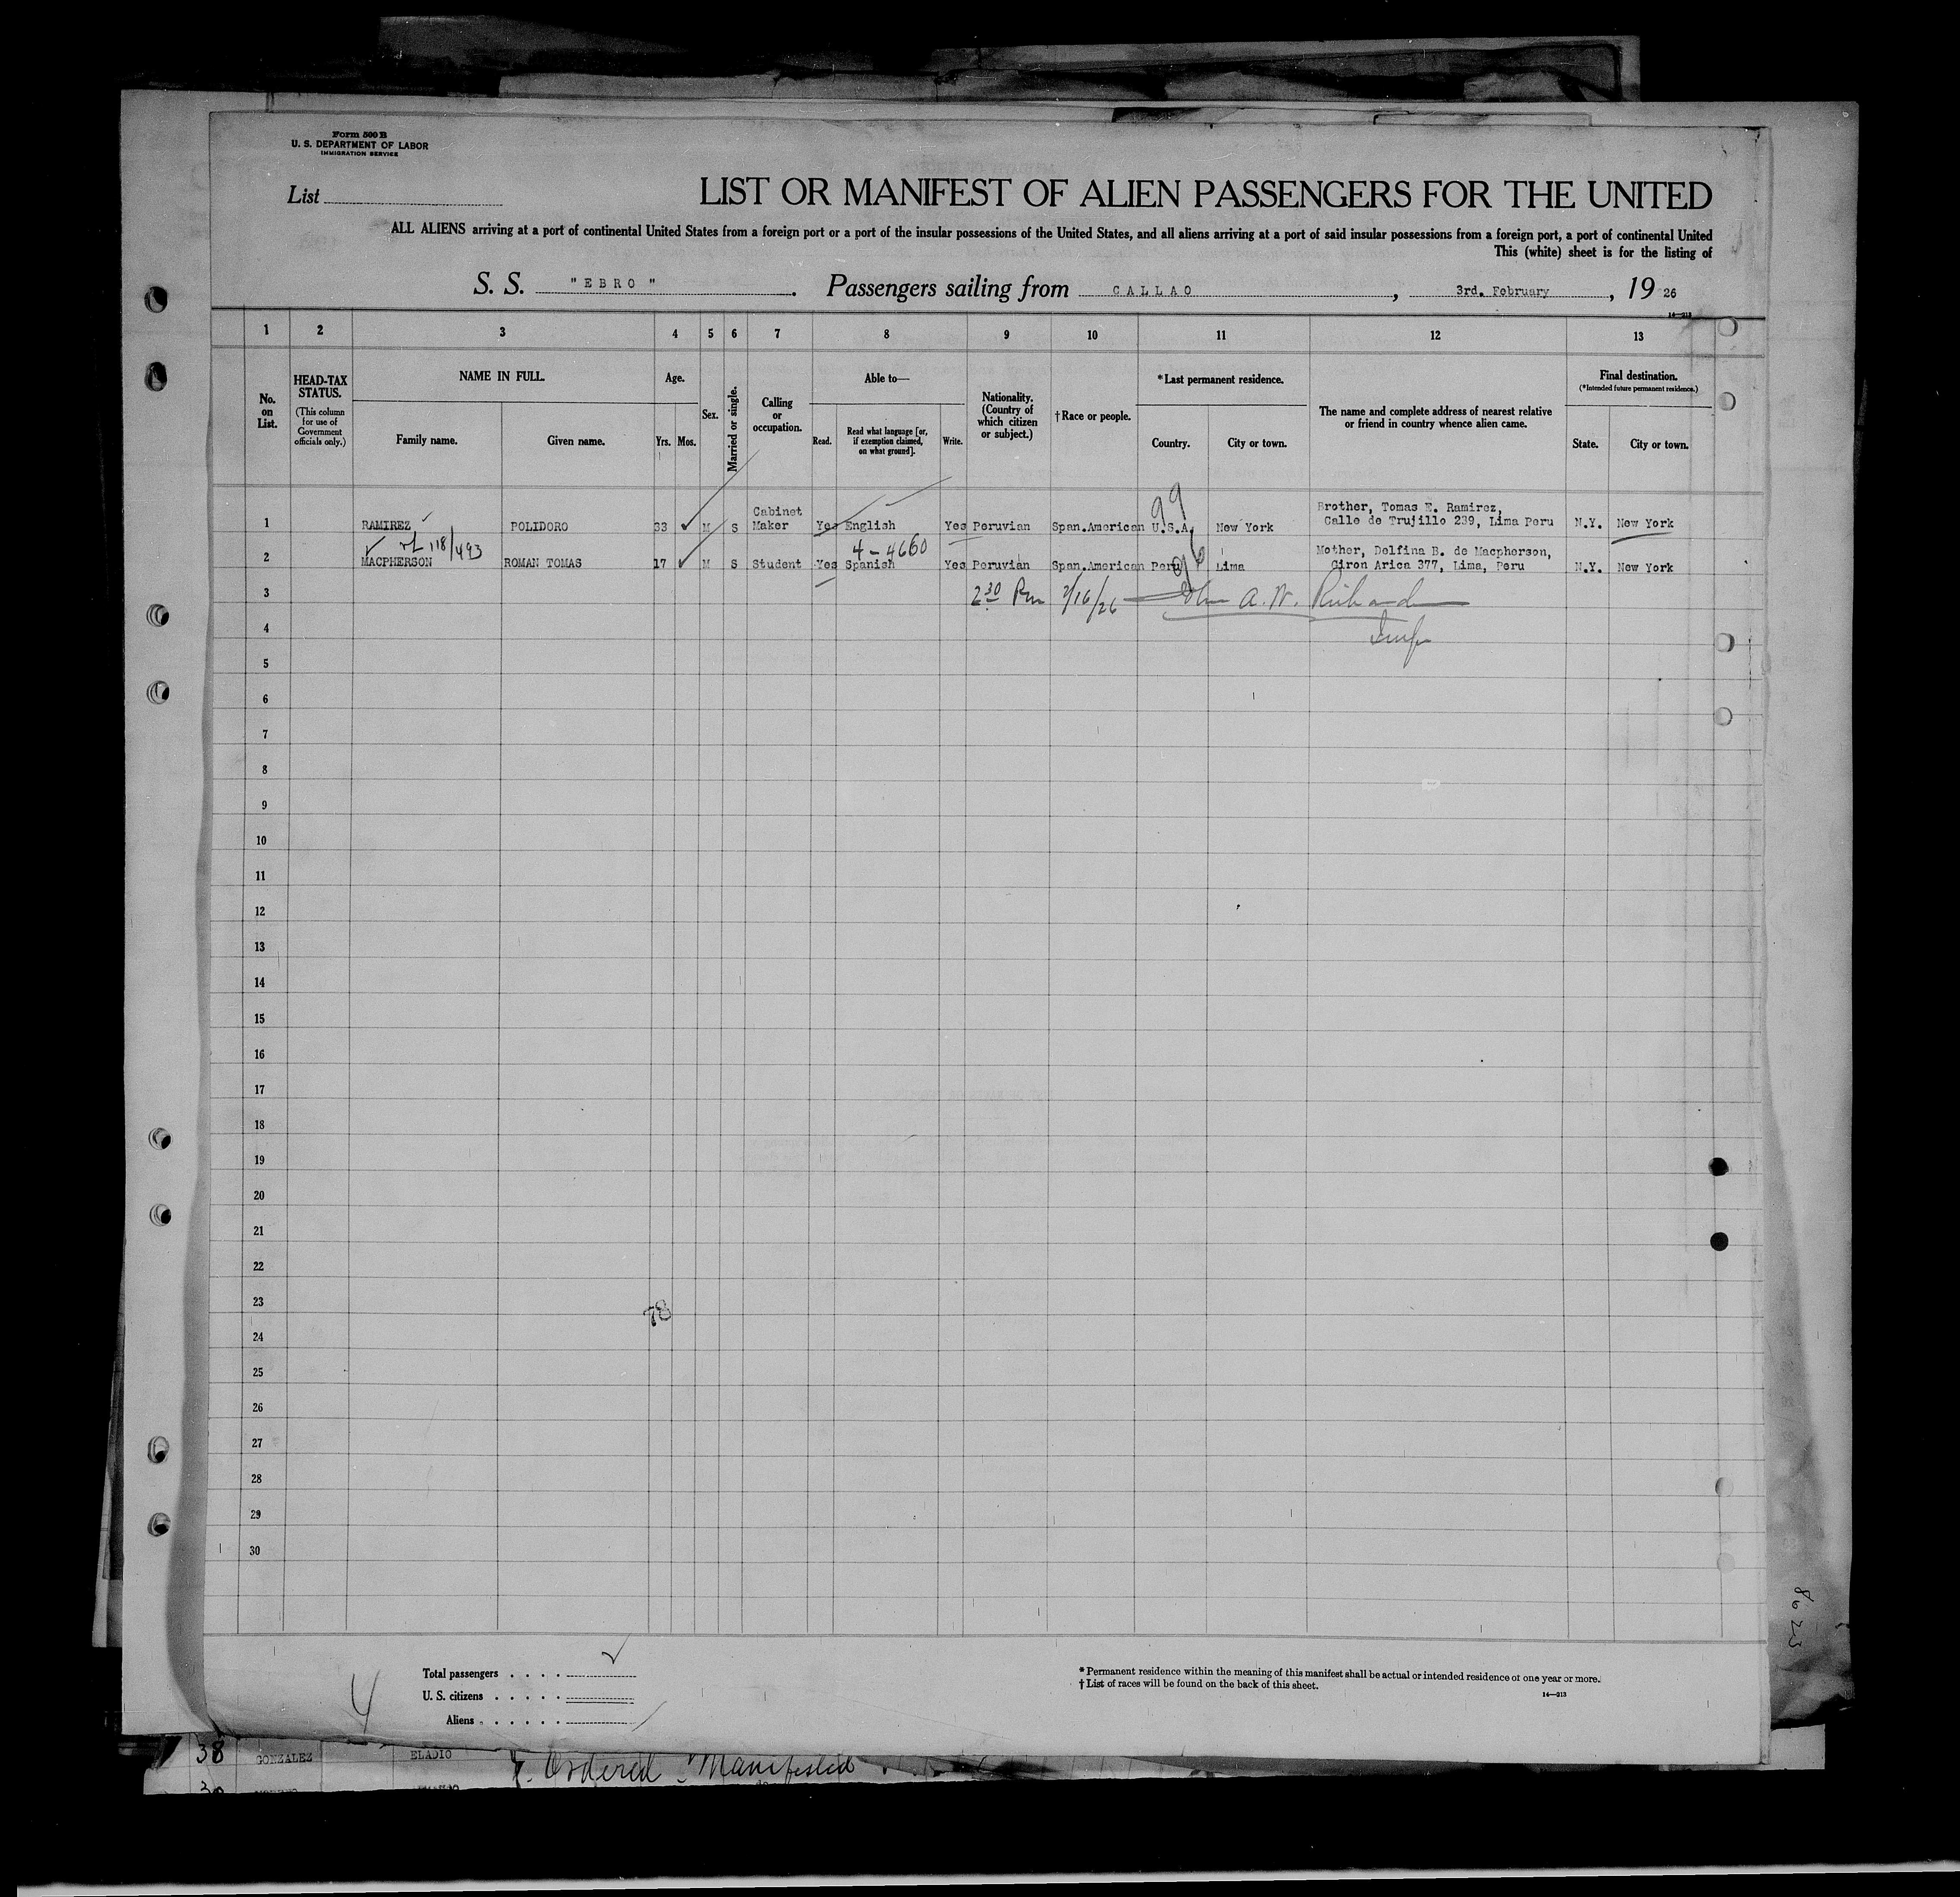 Form 500 B
U. S. DEPARTMENT OF LABOR
IMMIGRATION SERVICE
List
LIST OR MANIFEST OF ALIEN PASSENGERS FOR THE UNITED
ALL ALIENS arriving at a port of continental United States from a foreign port or a port of the insular possessions of the United States, and all aliens arriving at a port of said insular possessions from a foreign port, a port of continental United
This (white) sheet is for the listing of
S. S. "EBRO". Passengers sailing from CALLAO, 3rd. February, 19 26
14—213
1 2 3 4 5 6 7 8 9 10 11 12 13
No. on List.
HEAD-TAX STATUS.
(This column for use of Government officials only.)
NAME IN FULL.
Family name. Given name.
Age.
Yrs. Mos.
Sex.
Married or single.
Calling or occupation.
Able to—
Read. Read what language [or, if exemption claimed, on what ground]. Write.
Nationality. (Country of which citizen or subject.)
†Race or people.
*Last permanent residence.
Country. City or town.
The name and complete address of nearest relative or friend in country whence alien came.
Final destination.
(*Intended future permanent residence.)
State. City or town.
99
1 RAMIREZ POLIDORO 33 M S Cabinet Maker Yes English Yes Peruvian Span.American U.S.A. New York Brother, Tomas E. Ramirez, Calle de Trujillo 239, Lima Peru N.Y. New York
118/493
4-4660
2 MACPHERSON ROMAN TOMAS 17 M S Student Yes Spanish Yes Peruvian Span.American Peru Lima Mother, Delfina B. de Macpherson, Giron Arica 377, Lima, Peru N.Y. New York
3 2 30 Pm 2/16/26 John A. W. Richard
4 Insp
5
6
7
8
9
10
11
12
13
14
15
16
17
18
19
20
21
22
23
78
24
25
26
27
28
29
30
4
Total passengers
U. S. citizens
Aliens
* Permanent residence within the meaning of this manifest shall be actual or intended residence of one year or more.
† List of races will be found on the back of this sheet.
14—213
8623
38 GONZALEZ ELADIO
Ordered Manifested